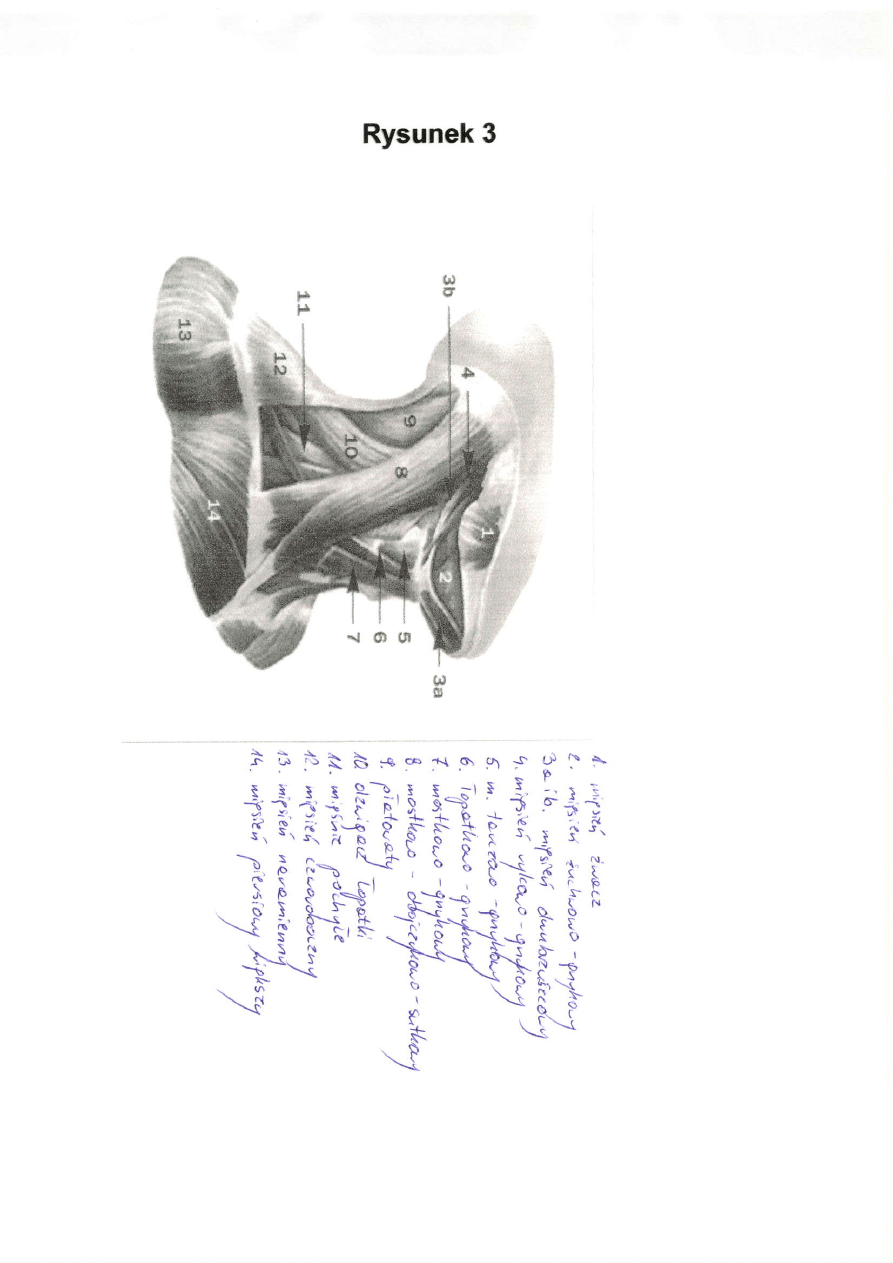 Rysunek 3
11
3b
13
12
4
9
10
8
1
14
2
7
6
5
3a
1. mięsień żwacz
2. mięsień żuchwowo-gnykowy
3a i b. mięsień dwubrzuścowy
4. mięsień rylcowo-gnykowy
5. m. tarczowo-gnykowy
6. łopatkowo-gnykowy
7. mostkowo-gnykowy
8. mostkowo-obojczykowo-sutkowy
9. płatowaty
10 dźwigacz łopatki
11. mięśnie pochyłe
12. mięsień czworoboczny
13. mięsień naramienny
14. mięsień piersiowy większy